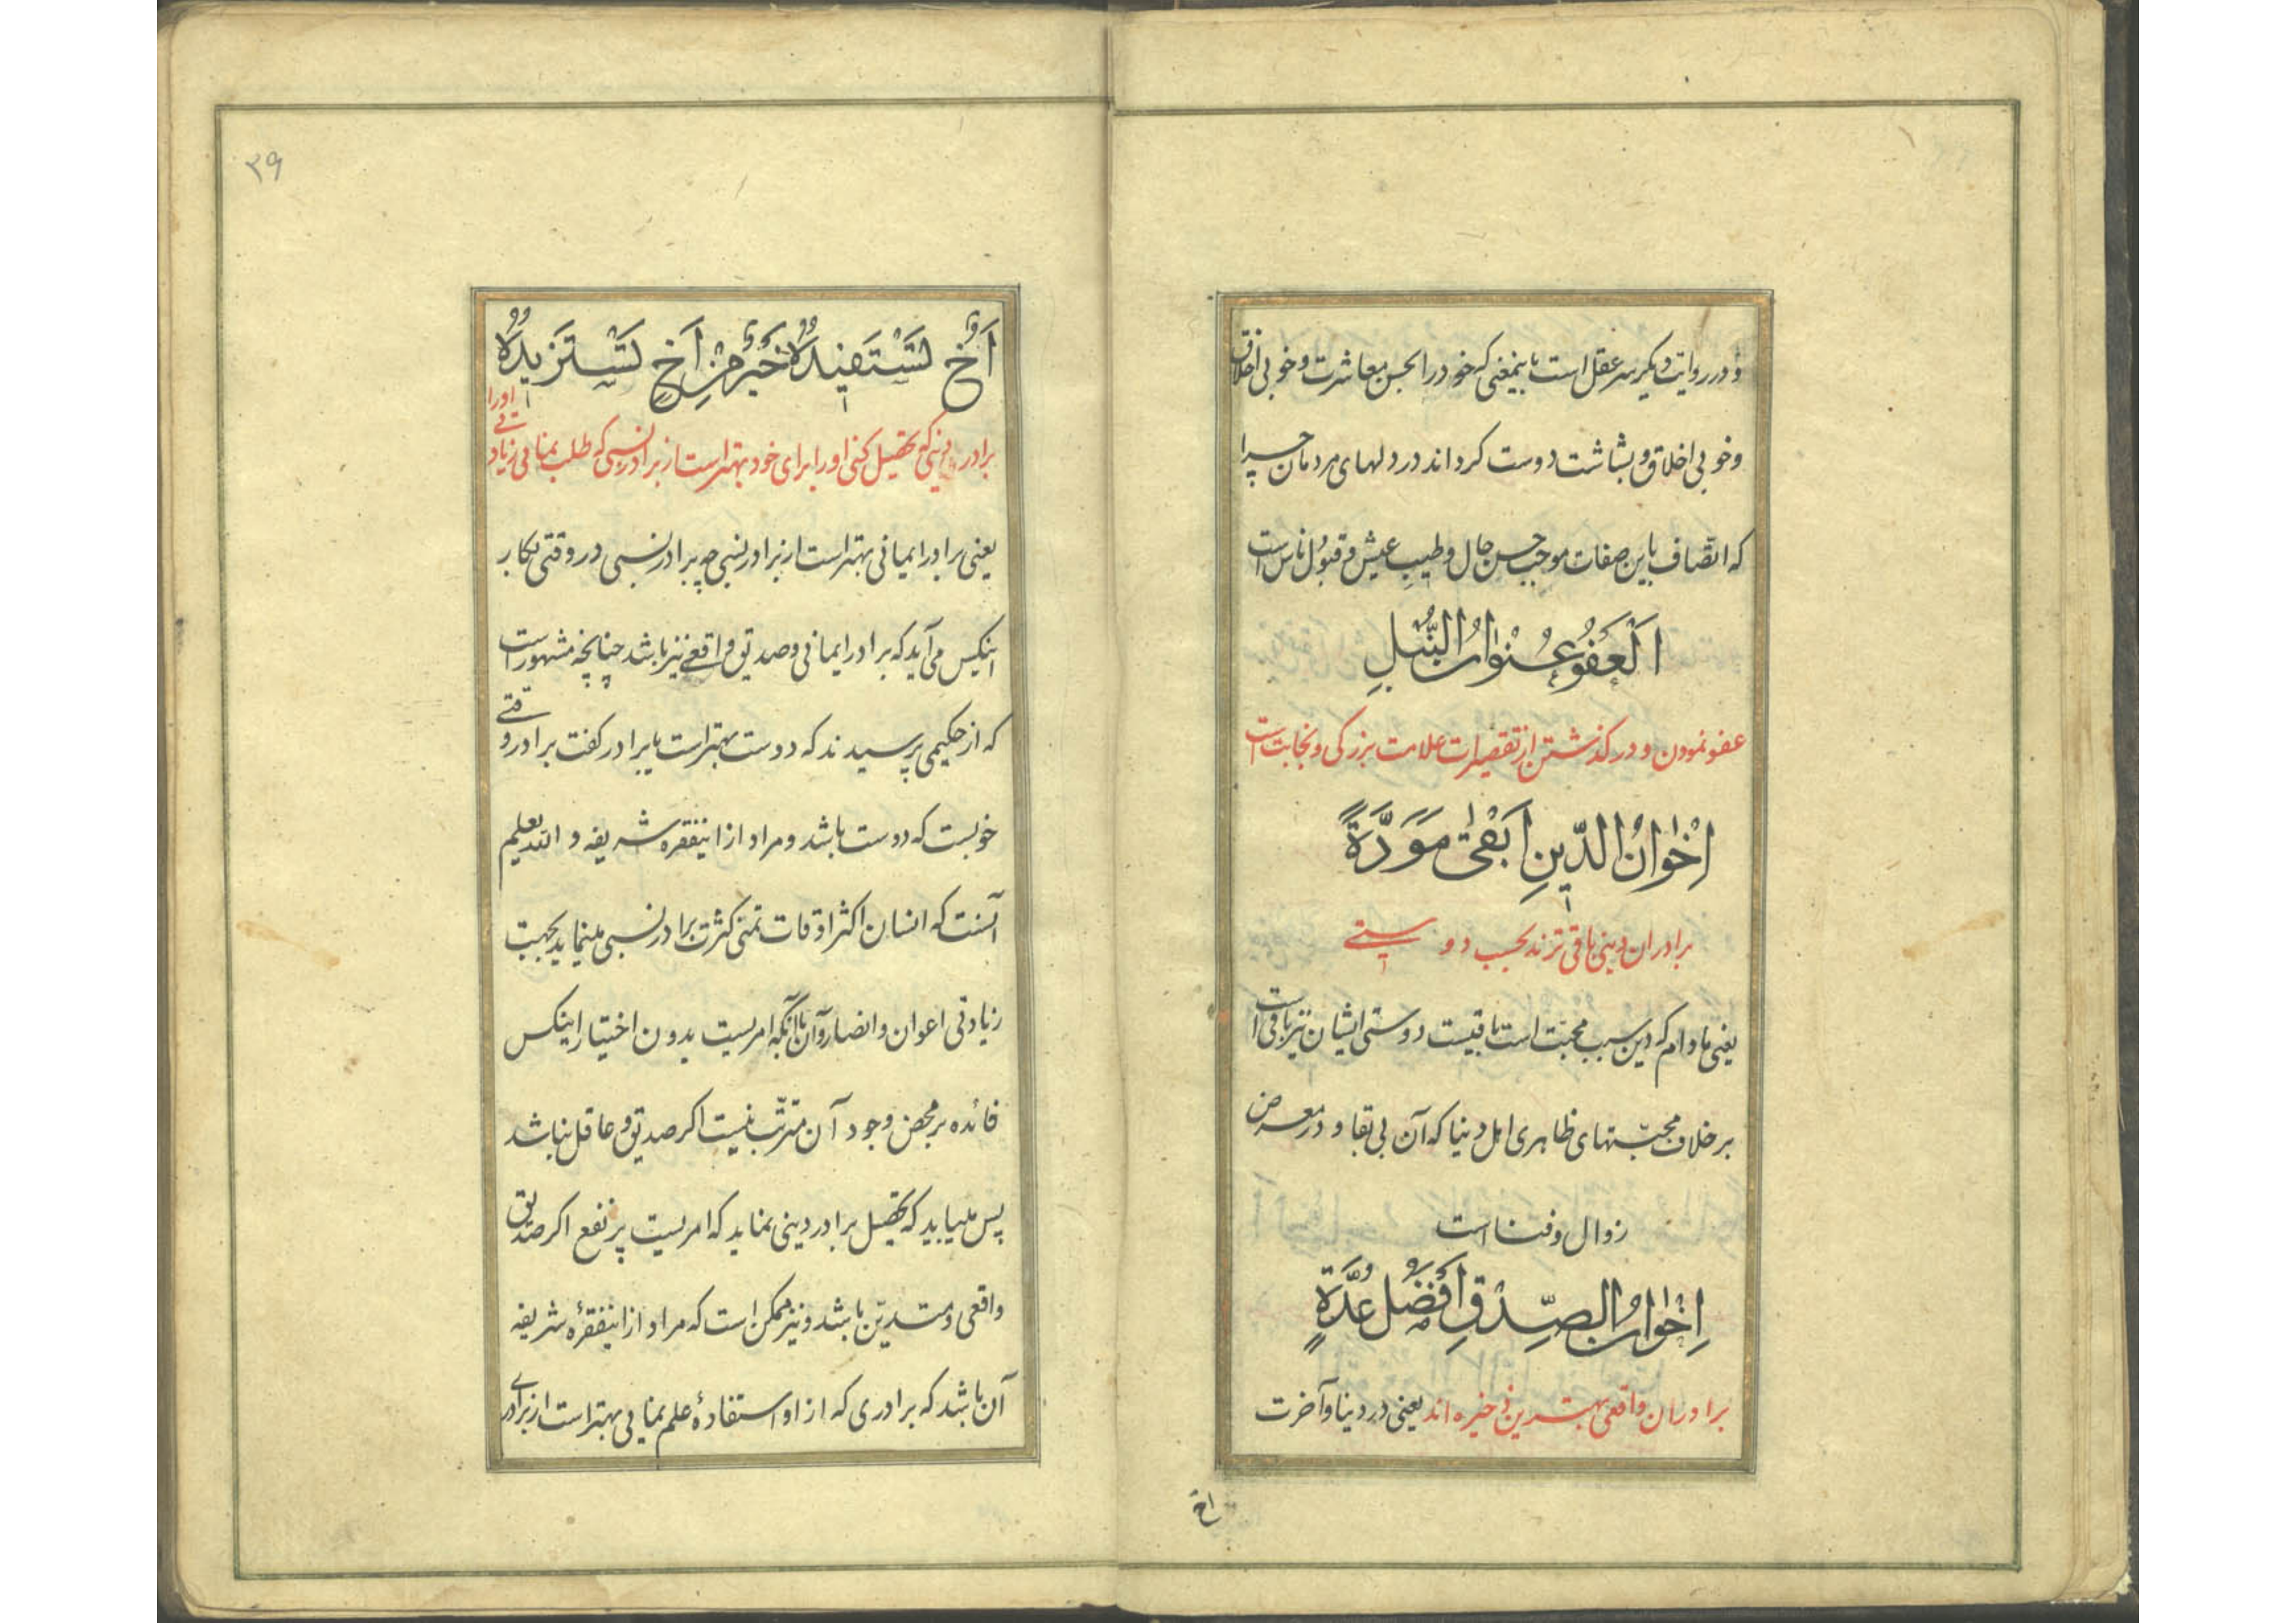 و در روایت دیگر سر عقل است باینمعنی که خود را بحسن معاشرت و خوبی اخلاق
و خوبی اخلاق و بشاشت دوست کرداند در دلهای مردمان چرا
که اتّصاف باین صفات موجب حسن حال و طیب عیش و قبول ناس است
اَلْعَفْوُ عُنْوانُ النُّبْلِ
عفو نمودن و در کذشتن از تقصیرات علامت بزرکی و نجابت است
اِخْوانُ الدّینِ اَبْقیٰ مَوَدَّةً
برادران دینی باقی ترند بحسب دوستی
یعنی مادام که دین سبب محبّت است باقیست دوستی ایشان نیز باقی است
بر خلاف محبّتهای ظاهری اهل دنیا که آن بی بقا و در معرض
زوال و فنا است
اِخْوانُ الصِّدْقِ اَفْضَلُ عُدَّةٍ
برادران واقعی بهترین ذخیره اند یعنی در دنیا و آخرت
اخ
۳۹
اَخٌ تَسْتَفیدُهُ خَیْرٌ مِنْ اَخٍ تَسْتَزیدُهُ
برادر دینی که تحصیل کنی او را برای خود بهتر است از برادر نسبی که طلب نمائی زیادتی او را
یعنی برادر ایمانی بهتر است از برادر نسبی چه برادر نسبی در وقتی بکار
اینکس می آید که برادر ایمانی و صدیق واقعی نیز باشد چنانچه مشهور است
که از حکیمی پرسیدند که دوست بهتر است یا برادر کفت برادر وقتی
خوبست که دوست باشد و مراد از اینفقره شریفه و الله یعلم
آنست که انسان اکثر اوقات تمنّی کثرت برادر نسبی مینماید بجهت
زیادتی اعوان و انصار و آن با آنکه امریست بدون اختیار اینکس
فائده بر محض وجود آن مترتّب نیست اکر صدیق و عاقل نباشد
پس میباید که تحصیل برادر دینی نماید که امریست پر نفع اکر صدیق
واقعی و متدیّن باشد و نیز ممکن است که مراد از اینفقرهٔ شریفه
آن باشد که برادری که از او استفادهٔ علم نمایی بهتر است از برادری